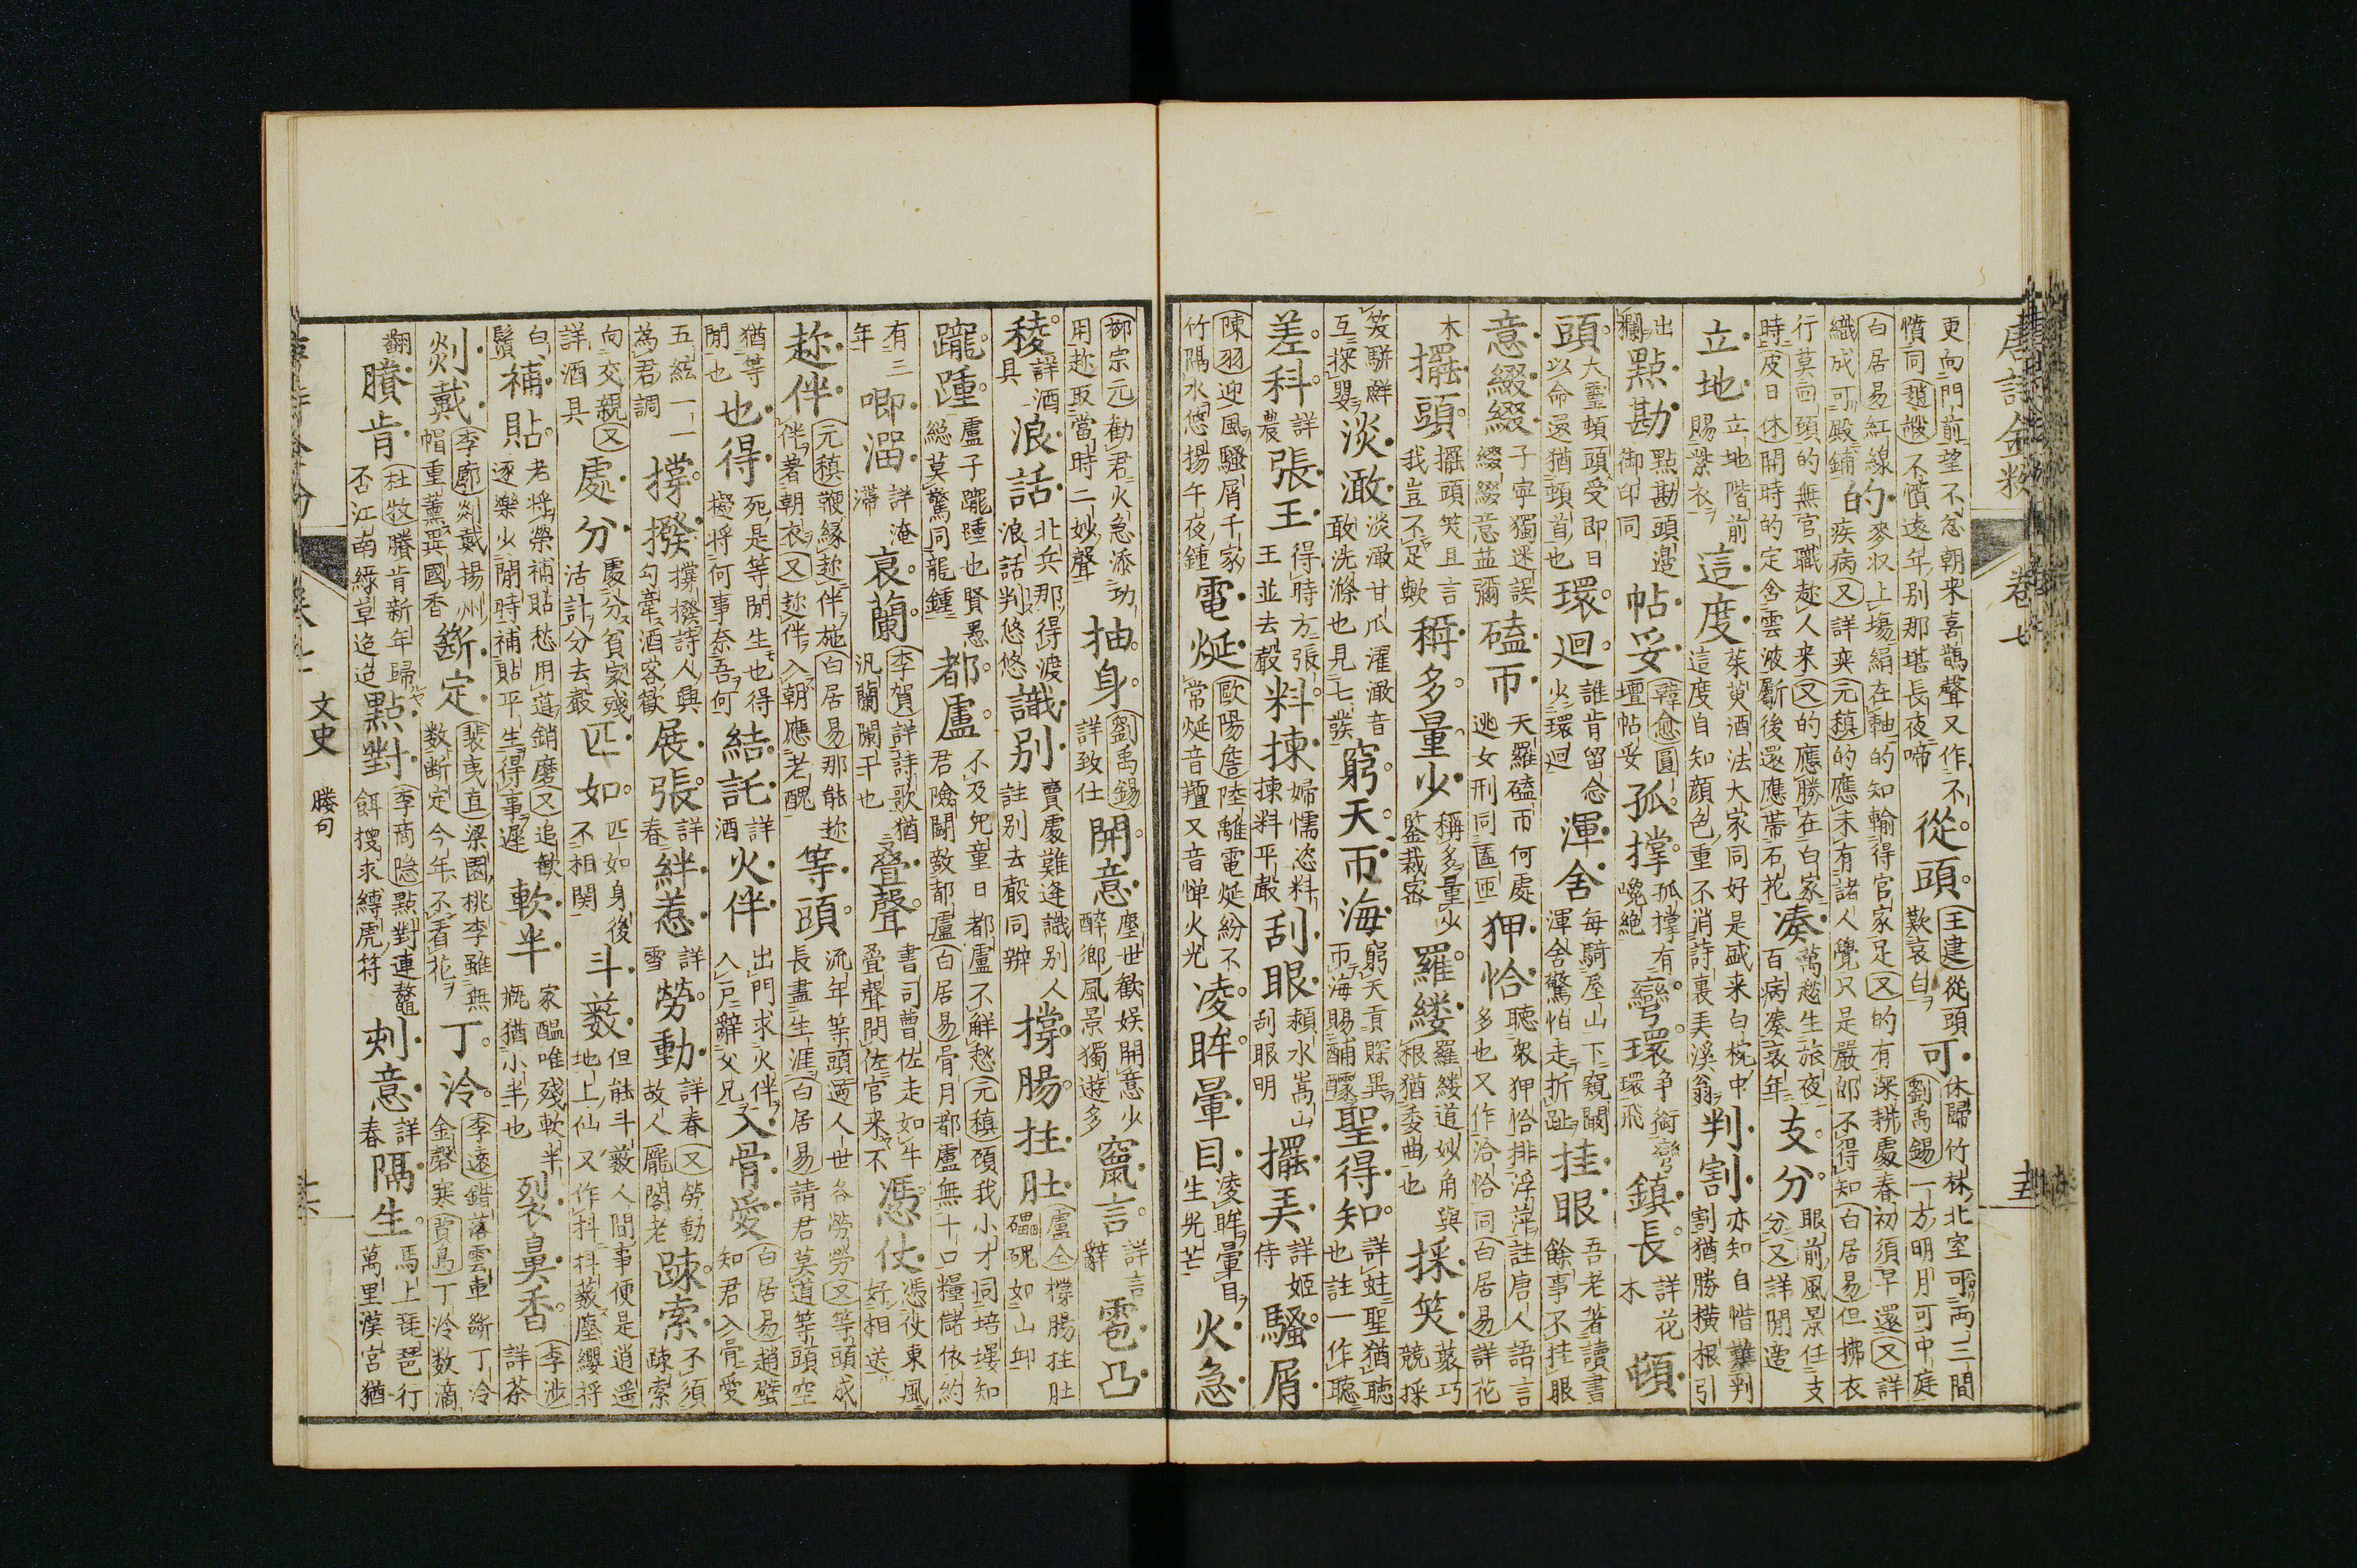 更向門前望不忿朝来喜鵲聲又作不
憤同趙嘏不憤遠年別那堪長夜啼
從頭
王建從頭
歎哀白
可
休歸竹林北室可兩三間
劉禹錫一方明月可中庭
白居易紅線
織成可殿鋪
的
麥収上塲絹在軸的知輸得官家足又的有深耕處春初須早還又詳
疾病又詳奕元稹的應未有諸人覺只是嚴郎不得知白居易但拂衣
行莫回頭的無官職趂人来又的應勝在白家
時皮日休開時的定含雲液斸後還應帶石花
湊
萬愁生旅夜
百病湊衰年
支分
眼前風景任支
分又詳閒適
立地
立地階前
賜紫衣
這度
茱萸酒法大家同好是盛来白椀中
這度自知顔色重不消詩裏弄溪翁
判割
亦知自惜難判
割猶勝横根引
出
欄
點勘
點勘頭邊
御印同
帖妥
韓愈圓
壇帖妥
孤撑
孤撑有
巉絶
彎環
争銜彎
環飛
鎮長
詳花
木
頓
頭
大璽頓頭受即日
以命還猶頓首也
環迴
誰肯留念
火環迴
渾舍
每騎屋山下窺闞
渾舍驚怕走折趾
挂眼
吾老著讀書
餘事不挂眼
意綴綴
子寜獨迷誤
綴綴意益彌
磕帀
天羅磕帀何處
逃女刑同匼匝
狎恰
聴衆狎恰排浮萍註唐人語言
多也又作洽恰同白居易詳花
木
擺頭
擺頭笑且言
我豈不足歟
稱多量少
稱多量少
鉴裁密
羅縷
羅縷道妙角與
根猶委曲也
採笑
蓑巧
競採
笑駢鮮
互探嬰
淡漵
淡漵甘瓜濯漵音
敢洗滌也見七發
窮天帀海
窮天貢賝異
帀海賜酺醵
聖得知
詳蛙聖猶聴
也註一作聴
差科
詳
農
張王
得時方張
王並去聲
料揀
婦懦恣料
揀料平聲
刮眼
頼水嵩山
刮眼明
擺弄
詳姬
侍
騷屑
陳羽迎風騷屑千家
竹隔水悠揚午夜鍾
電烻
歐陽詹陸離電烻紛不
常烻音羶又音㷼火光
凌眸暈目
凌眸暈目
生光芒
火急
柳宗元勸君火急添功
用趂取當時二妙聲
抽身
劉禹錫
詳致仕
開意
塵世歡娯開意少
醉鄉風景獨遊多
竄言
詳言
辭
雹凸
稜
詳酒
具
浪話
北兵那得渡
浪話判悠悠
識别
賣處難逢識别人
註别去聲同辨
撐腸拄肚
盧仝撐腸拄肚
礧磈如山丘
躘踵
盧子躘踵也賢愚
総莫驚同龍鍾
都盧
不及兒童日都盧不解愁元稹碩我小才同培塿知
君險鬪敵都盧白居易骨月都盧無十口糧儲依約
有三
年
喞溜
詳淹
滯
哀蘭
李賀詳詩歌猶
汎蘭闌干也
叠聲
書司曹佐走如牛
叠聲問佐官来不
馮仗
馮仗東風
好相送
趂伴
元稹鞭縁趂伴施白居易那能趂
伴著朝衣又趂伴入朝應老醜
等頭
流年等頭過人世各勞勞又等頭成
長盡生涯白居易請君莫道等頭空
猶等
閒也
也得
死是等閒生也得
擬将何事奈吾何
結託
詳
酒
火伴
出門求火伴
入戸辭父兄
入骨愛
白居易趙璧
知君入骨愛
五絃一一
為君調
撐撥
撐撥詩人興
勾牽酒客歡
展張
詳
春
絆惹
詳
雪
勞動
詳春又勞動
故人龐閣老
踈索
不須
踈索
向交親又
詳酒具
處分
處分貧家殘
活計分去聲
匹如
匹如身後
不相関
斗薮
但能斗薮人間事便是逍遥
地上仙又作抖抖薮塵纓捋
白
鬚
補貼
老将榮補貼愁用道銷磨又追歡
逐樂火閒時補貼平生得事遲
軟半
家醖唯殘軟半
瓶猶小半也
裂鼻香
李渉
詳茶
剡戴
李廓剡戴揚州
帽重薰異國香
斷定
裴夷直梁園桃李雖無
数断定今年不看花
丁泠
李遠錯落雲車斷丁泠
金磬寒賈島丁泠数滴
翻
臢肯
杜牧臢肯新年歸
否江南緑草迢迢
點對
李商隐點對連鼇
餌搜求縛虎符
刺意
詳
春
隔生
馬上琵琶行
萬里漢宮猶
唐詩金粉 卷七
文史 媵句